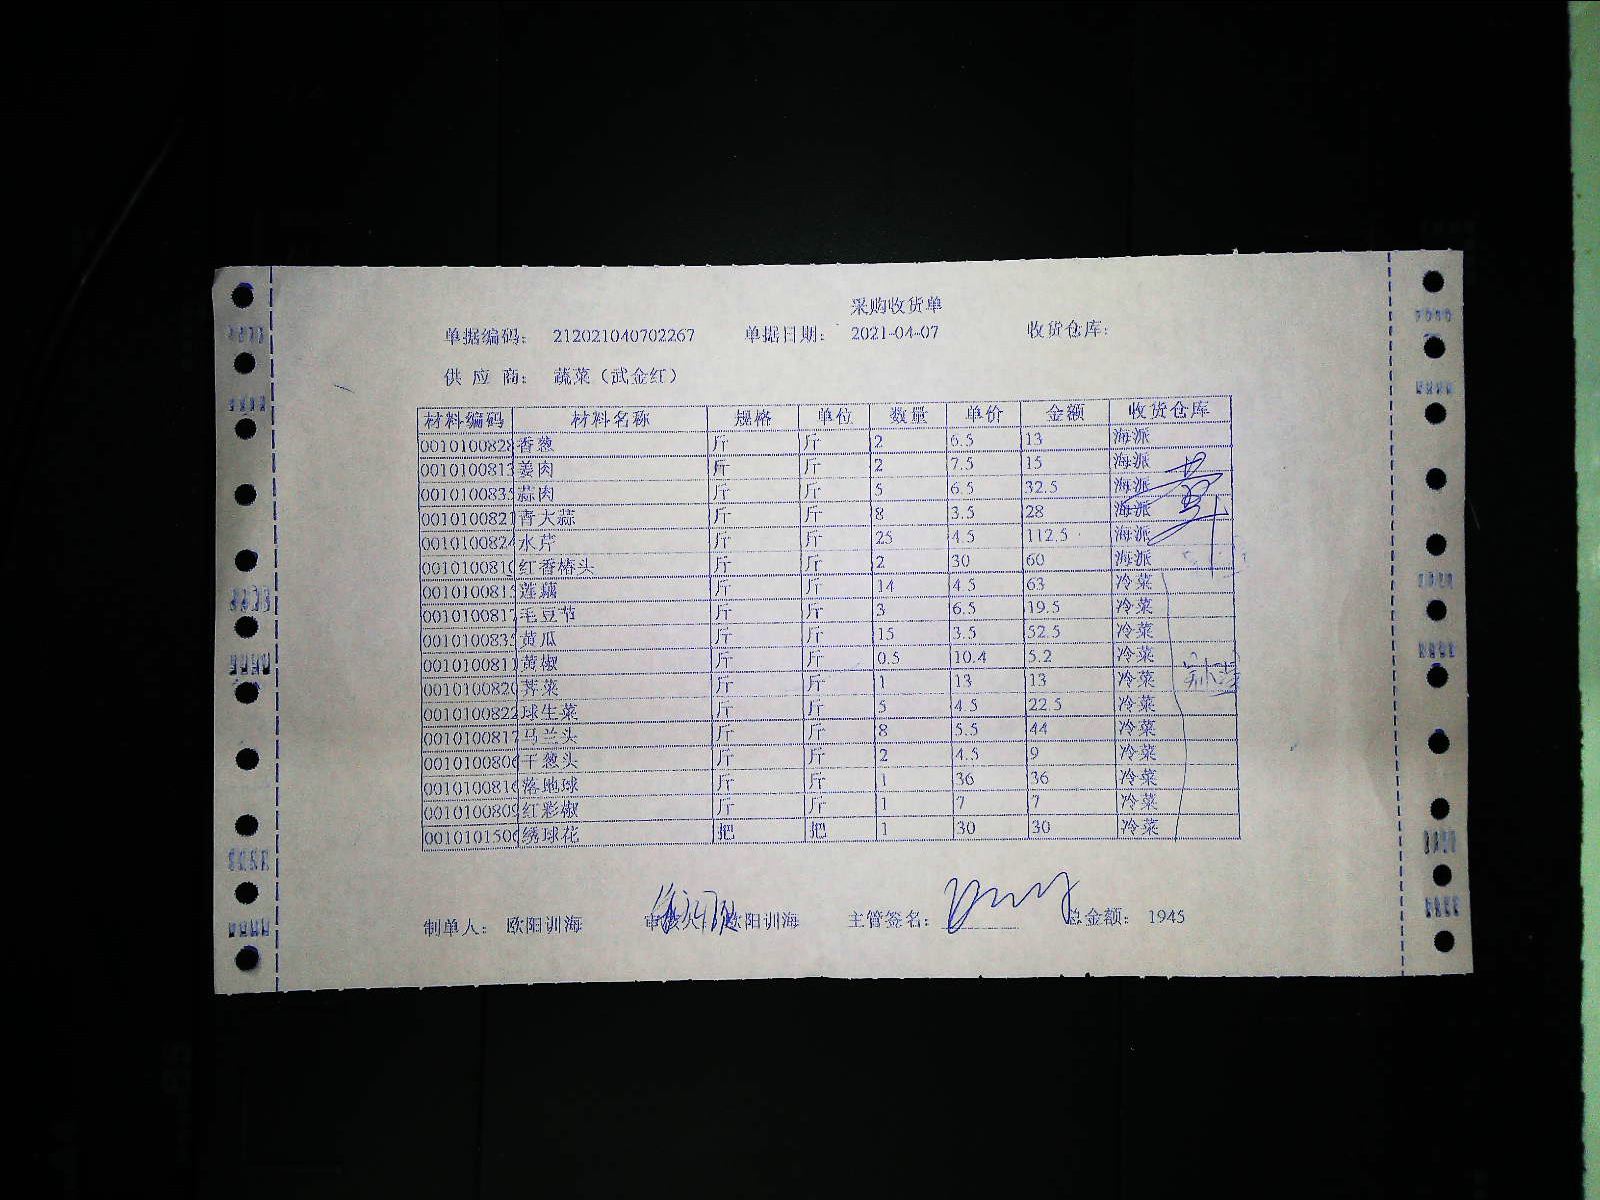 采购收货单
单据编码： 212021040702267 单据日期： 2021-04-07 收货仓库：
供 应 商： 蔬菜（武金红）
材料编码 材料名称 规格 单位 数量 单价 金额 收货仓库
0010100828 香葱 斤 斤 2 6.5 13 海派
0010100813 姜肉 斤 斤 2 7.5 15 海派
001010083 蒜肉 斤 斤 5 6.5 32.5 海派
0010100821 青大蒜 斤 斤 8 3.5 28 海派
001010082 水芹 斤 斤 25 4.5 112.5 海派
001010081 红香椿头 斤 斤 2 30 60 海派
001010081 莲藕 斤 斤 14 4.5 63 冷菜
001010081 毛豆节 斤 斤 3 6.5 19.5 冷菜
001010083 黄瓜 斤 斤 15 3.5 52.5 冷菜
0010100811 黄椒 斤 斤 0.5 10.4 5.2 冷菜
001010082 荠菜 斤 斤 1 13 13 冷菜
0010100822 球生菜 斤 斤 5 4.5 22.5 冷菜
001010081 马兰头 斤 斤 8 5.5 44 冷菜
001010080 干葱头 斤 斤 2 4.5 9 冷菜
001010081 落地球 斤 斤 1 36 36 冷菜
001010080 红彩椒 斤 斤 1 7 7 冷菜
001010150 绣球花 把 把 1 30 30 冷菜
制单人： 欧阳训海 审核人： 欧阳训海 主管签名： 总金额： 1945